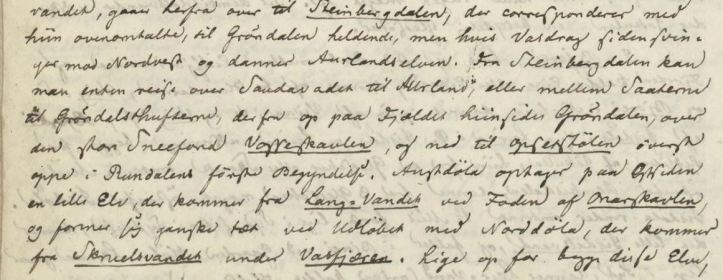 vandet, gaaer herfra over til Steinbergdalen, der corresponderer med
hiin ovenomtalte, til Gröndalen heldende, men hvis Vasdrag siden svin-
ger mod Nordvest og danner Aurlandselven. Fra Steinbergdalen kan
man enten reise over til Aurland, eller mellem Saaterne
til, derfra op paa Fjeldet hiinsides Gröndalen, over
den stor Sneefond Vosseskavlen, og ned til opsetstölen överst
oppe i Rundalens förste Begyndelse. Austdöla optager paa Östsiden
en lille Elv, der kommer fra Lang-Vandet ved Foden af Onarskavlen,
og formerer sig ganske tæt ved Udlöbet med Norddöla, der kommer
fra under. Lige op for begge disse Elve,